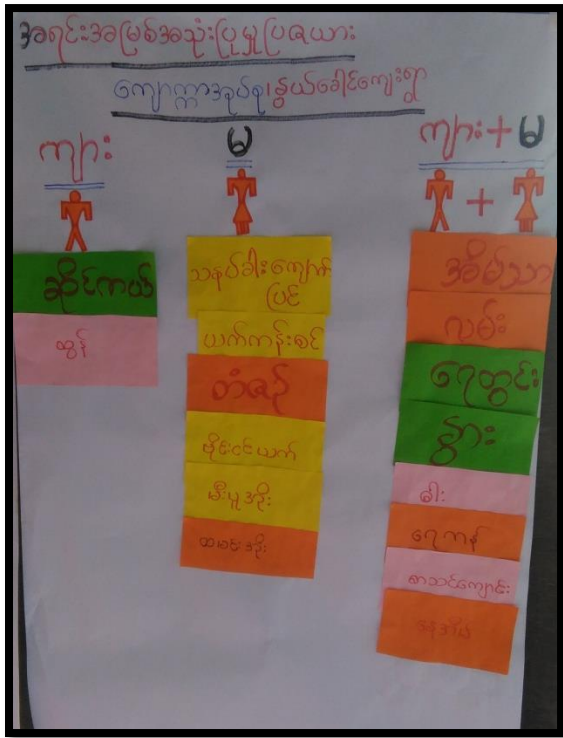 အရင်းအမြစ်အသုံးပြုမှုပြဇယား
ကျောက္ကာအုပ်စု၊နွယ်ခေါင်ကျေးရွာ
ကျား
မ
ကျား+မ
+
ဆိုင်ကယ်
ထွန်
သနပ်ခါးကျောက်
ပြင်
ယက်ကန်းစင်
တံစဉ်
ဗိုင်းငင်ယက်
မီးပူအိုး
ထမင်းအိုး
အိမ်သာ
လမ်း
ရေတွင်း
နွား
ဓါး
ရေကန်
စာသင်ကျောင်း
နေအိမ်